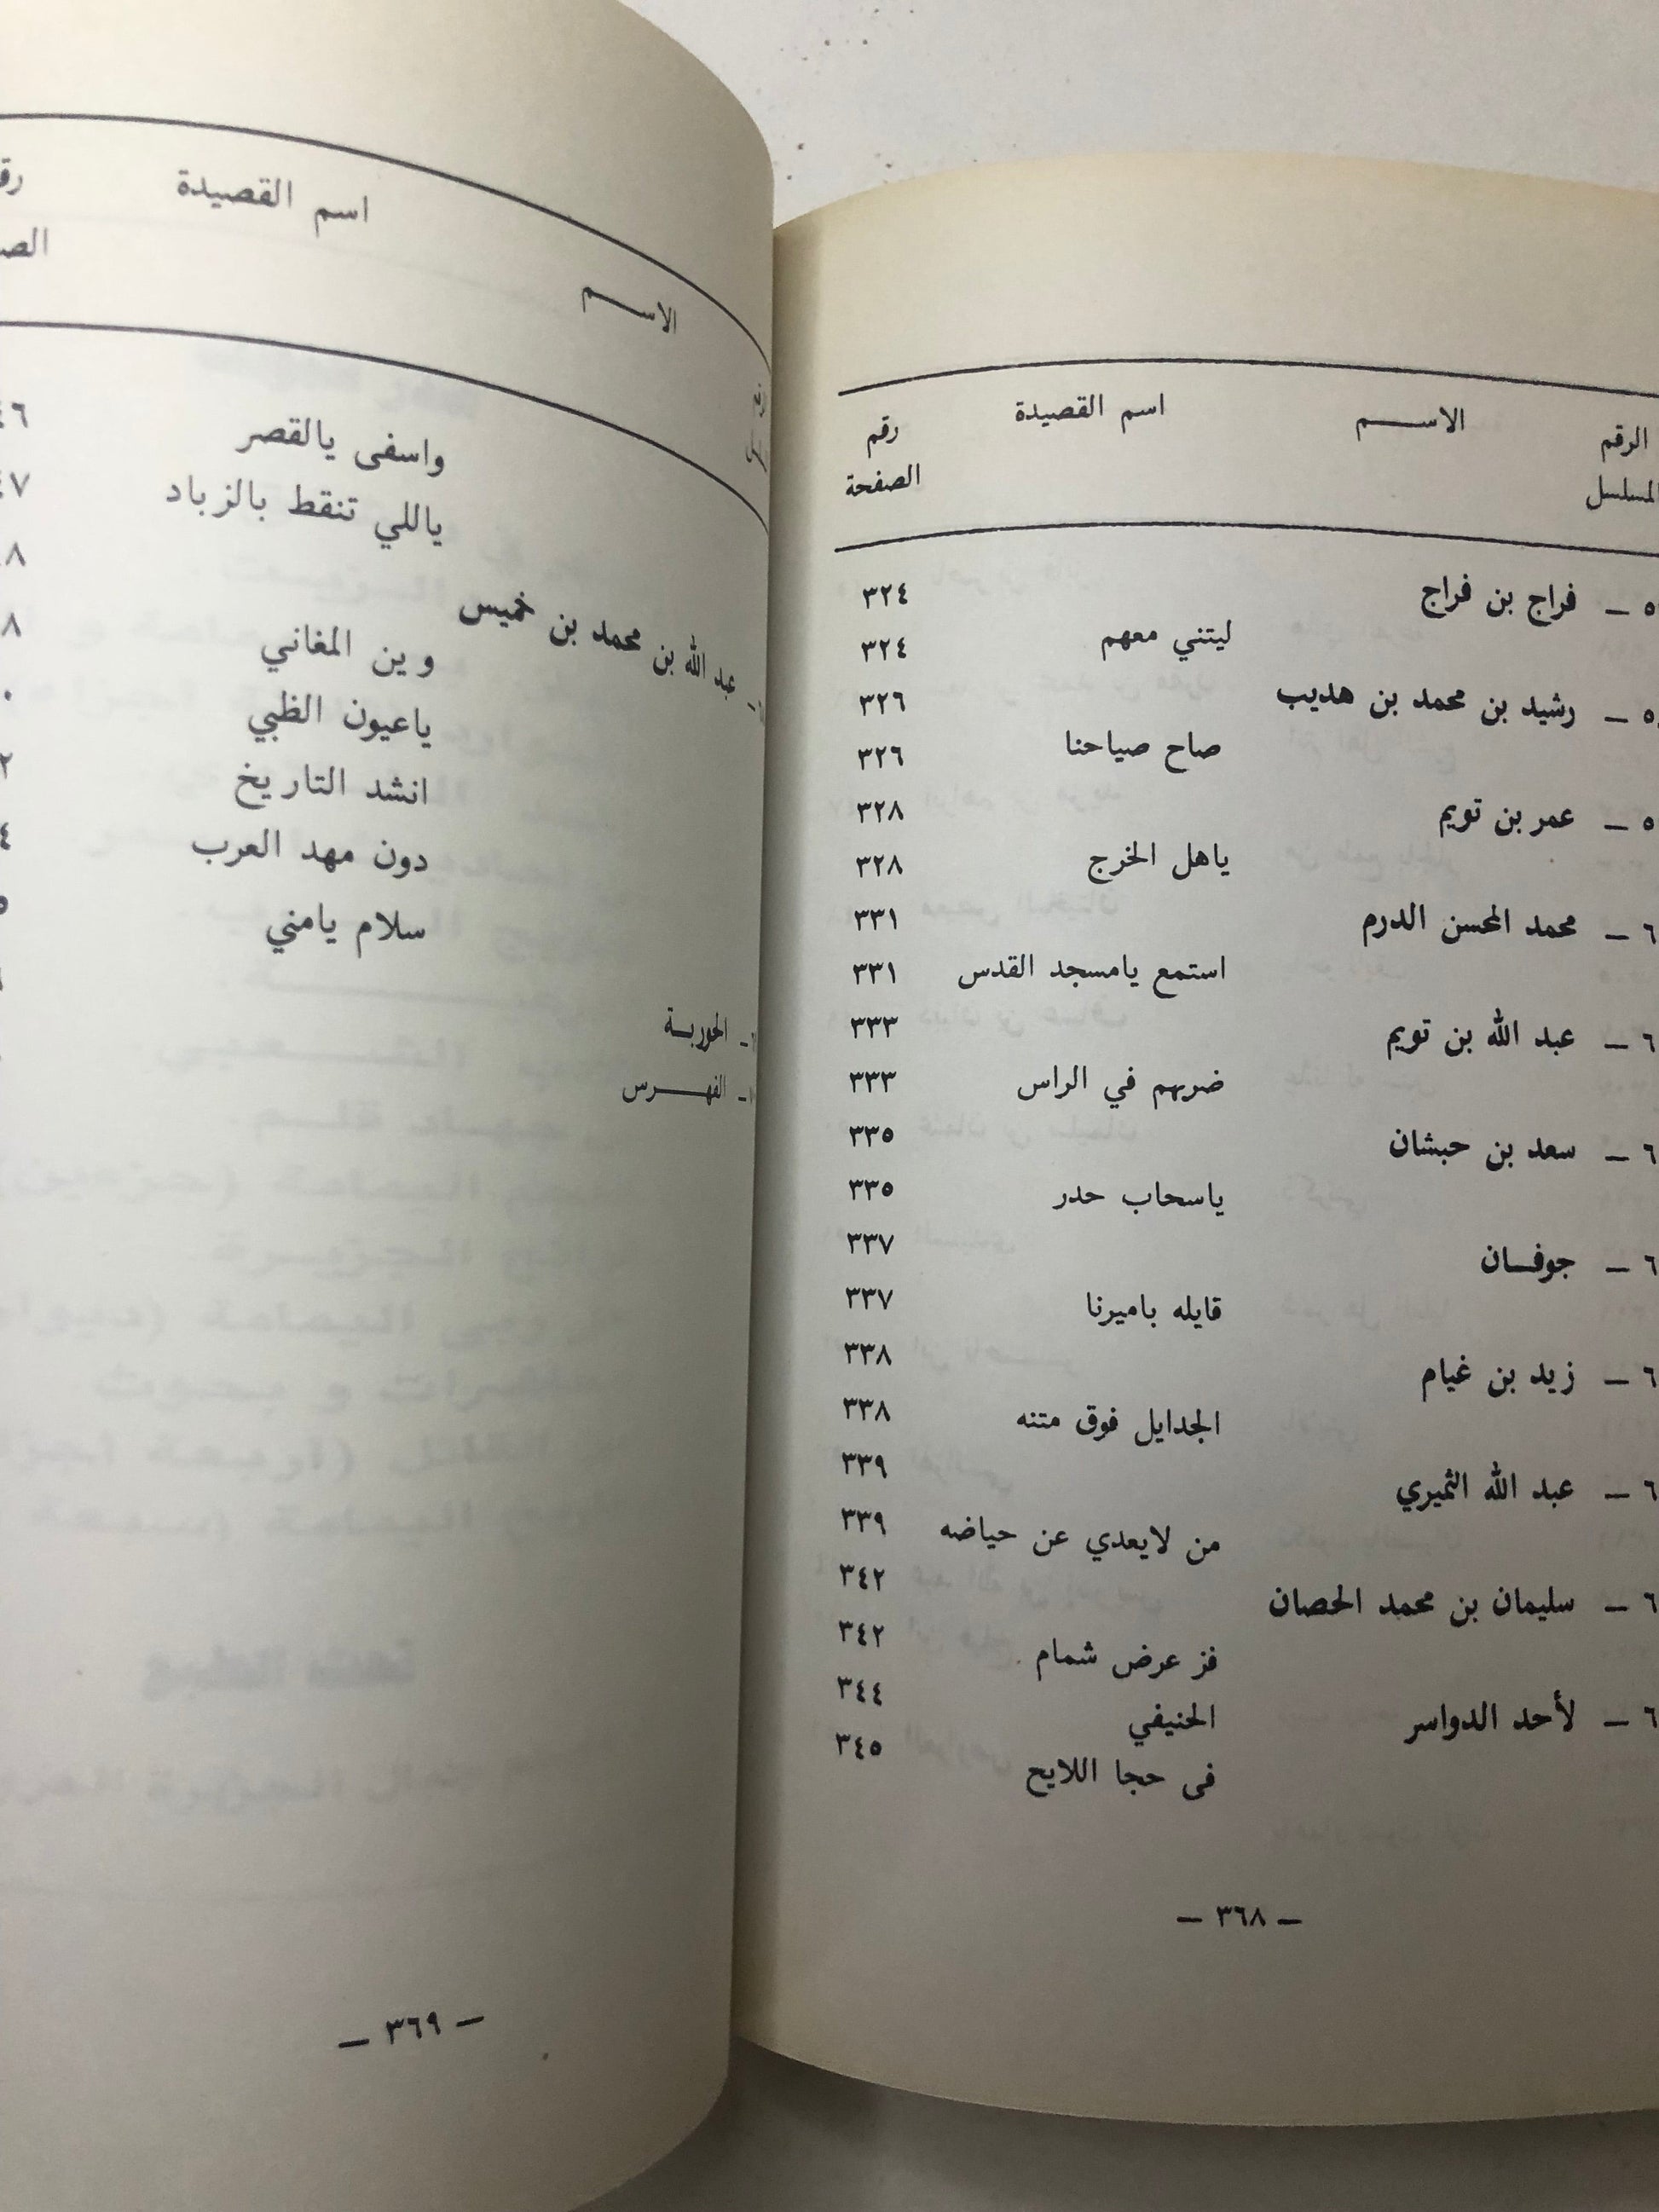 الرقم الاســـم اسم القصيدة رقم
المسلسل الصفحة
فراج بن فراج ٣٢٤
ليتني معهم ٣٢٤
رشيد بن محمد بن هديب ٣٢٦
صاح صياحنا ٣٢٦
عمر بن تويم ٣٢٨
ياهل الخرج ٣٢٨
محمد المحسن الدرم ٣٣١
استمع يامسجد القدس ٣٣١
عبد الله بن تويم ٣٣٣
ضربهم في الراس ٣٣٣
سعد بن حبشان ٣٣٥
ياسحاب حدر ٣٣٥
جوفـان ٣٣٧
قايله باميرنا ٣٣٧
زيد بن غيام ٣٣٨
الجدايل فوق متنه ٣٣٨
عبد الله الثميري ٣٣٩
من لايعدي عن حياضه ٣٣٩
سليمان بن محمد الحصان ٣٤٢
فز عرض شمام ٣٤٢
لأحد الدواسر الحنيفي ٣٤٤
فى حجا اللايح ٣٤٥
— ٣٦٨ —
الاســـم اسم القصيدة
واسفى يالقصر
ياللي تنقط بالزباد
عبد الله بن محمد بن خميس
وين المغاني
ياعيون الظبي
انشد التاريخ
دون مهد العرب
سلام يامني
الحوربـة
الفهـــرس
— ٣٦٩ —